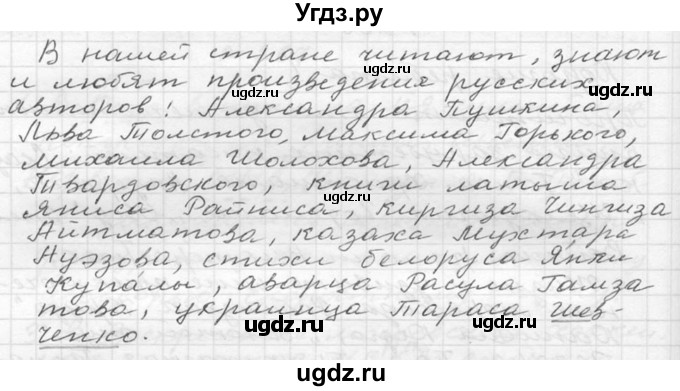 Угдз.ру
В нашей стране читают, знают
и любят произведения русских
авторов: Александра Пушкина,
Льва Толстого, Максима Горького,
Михаила Шолохова, Александра
Твардовского, книги латыша
Яниса Райниса, киргиза Чингиза
Айтматова, казаха Мухтара
Ауэзова, стихи белоруса Янки
Купалы, аварца Расула Гамза
това, украинца Тараса Шев-
ченко.
ugdz.ru
ugdz.ru
ugdz.ru
ugdz.ru
ugdz.ru
ugdz.ru
ugdz.ru
ugdz.ru
ugdz.ru